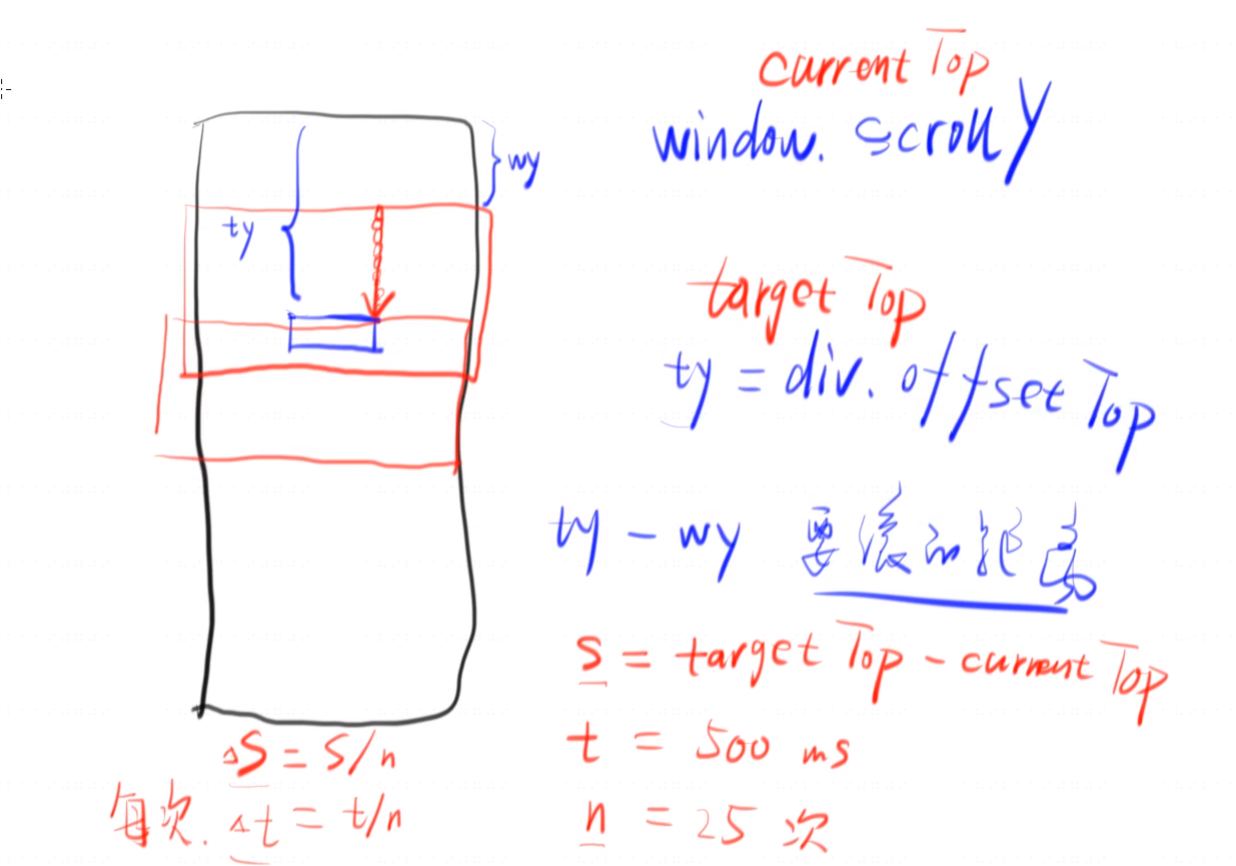 current Top
window. scroll Y
wy
ty
target Top
ty = div. offset Top
ty - wy 要滚的距离
s = target Top - current Top
t = 500 ms
n = 25 次
△S = S/n
每次. △t = t/n